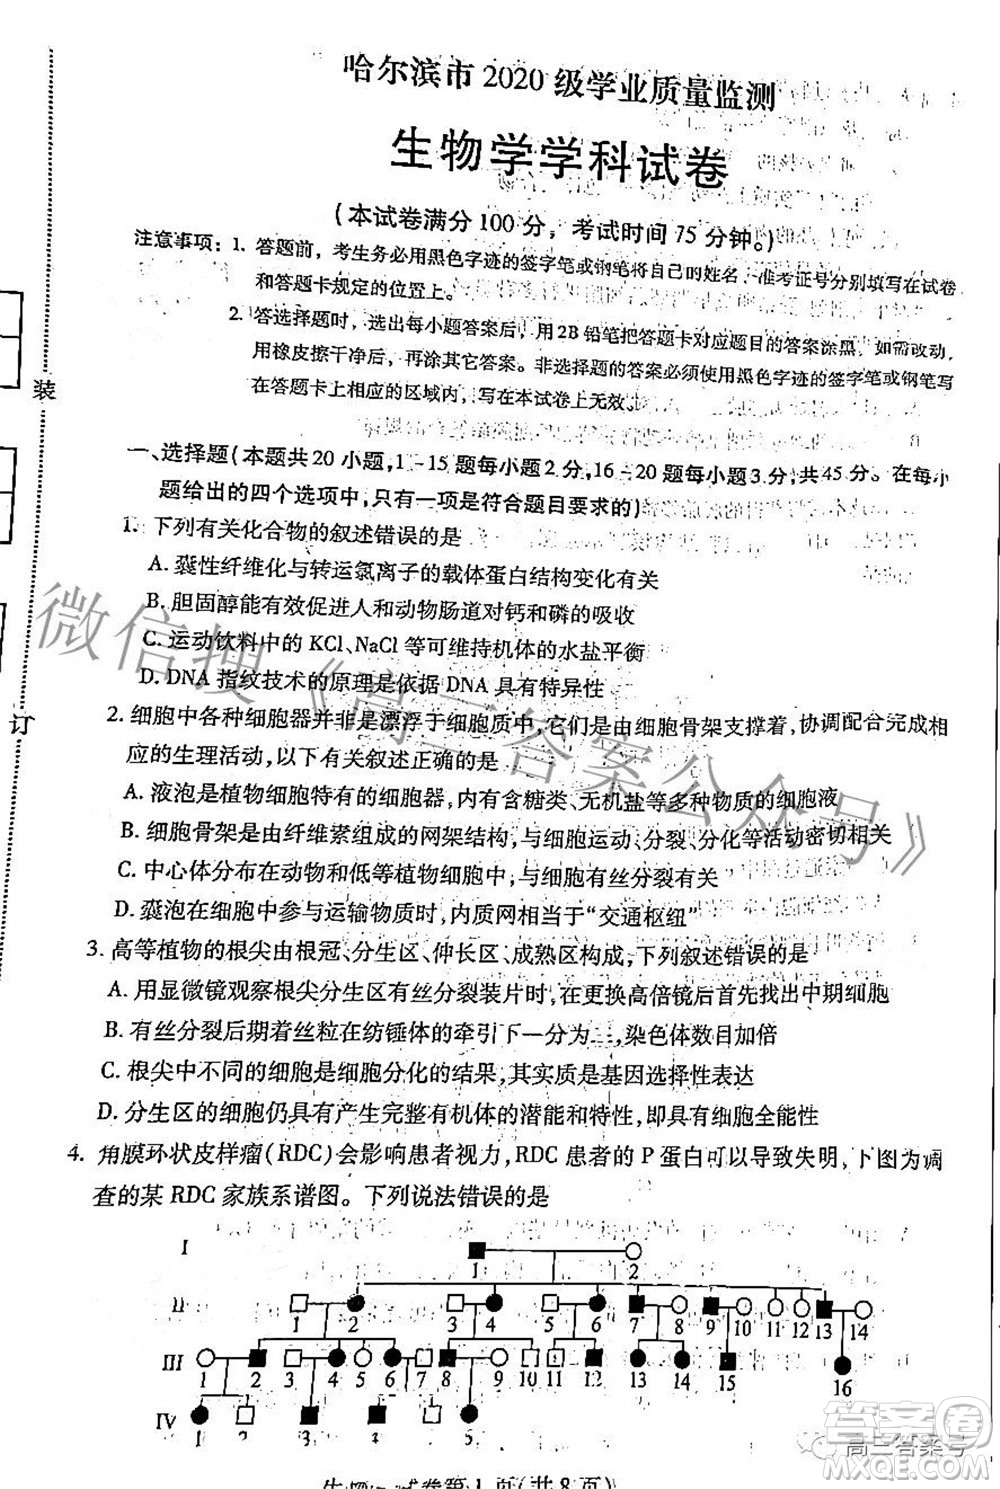 哈尔滨市 2020 级学业质量监测
生物学学科试卷
(本试卷满分 100 分，考试时间 75 分钟。)
注意事项：1. 答题前，考生务必用黑色字迹的签字笔或钢笔将自己的姓名、准考证号分别填写在试卷
和答题卡规定的位置上。
2. 答选择题时，选出每小题答案后，用 2B 铅笔把答题卡对应题目的答案涂黑，如需改动，
用橡皮擦干净后，再涂其它答案。非选择题的答案必须使用黑色字迹的签字笔或钢笔写
在答题卡上相应的区域内，写在本试卷上无效。
装
订
一、选择题(本题共 20 小题，1-15 题每小题 2 分，16-20 题每小题 3 分，共 45 分。在每小
题给出的四个选项中，只有一项是符合题目要求的)
1. 下列有关化合物的叙述错误的是
A. 囊性纤维化与转运氯离子的载体蛋白结构变化有关
B. 胆固醇能有效促进人和动物肠道对钙和磷的吸收
C. 运动饮料中的 KCl、NaCl 等可维持机体的水盐平衡
D. DNA 指纹技术的原理是依据 DNA 具有特异性
2. 细胞中各种细胞器并非是漂浮于细胞质中，它们是由细胞骨架支撑着，协调配合完成相
应的生理活动，以下有关叙述正确的是
A. 液泡是植物细胞特有的细胞器，内有含糖类、无机盐等多种物质的细胞液
B. 细胞骨架是由纤维素组成的网架结构，与细胞运动、分裂、分化等活动密切相关
C. 中心体分布在动物和低等植物细胞中，与细胞有丝分裂有关
D. 囊泡在细胞中参与运输物质时，内质网相当于“交通枢纽”
3. 高等植物的根尖由根冠、分生区、伸长区、成熟区构成，下列叙述错误的是
A. 用显微镜观察根尖分生区有丝分裂装片时，在更换高倍镜后首先找出中期细胞
B. 有丝分裂后期着丝粒在纺锤体的牵引下一分为二，染色体数目加倍
C. 根尖中不同的细胞是细胞分化的结果，其实质是基因的选择性表达
D. 分生区的细胞仍具有产生完整有机体的潜能和特性，即具有细胞全能性
4. 角膜环状皮样瘤(RDC)会影响患者视力，RDC 患者的 P 蛋白可以导致失明，下图为调
查的某 RDC 家族系谱图。下列说法错误的是
I 1 2
II 1 2 3 4 5 6 7 8 9 10 11 12 13 14
III 1 2 3 4 5 6 7 8 9 10 11 12 13 14 15 16
IV 1 2 3 4 5
生物学试卷第 1 页(共 8 页)
微信搜《高三答案公众号》
高三答案号
答案圈
MXQE.COM